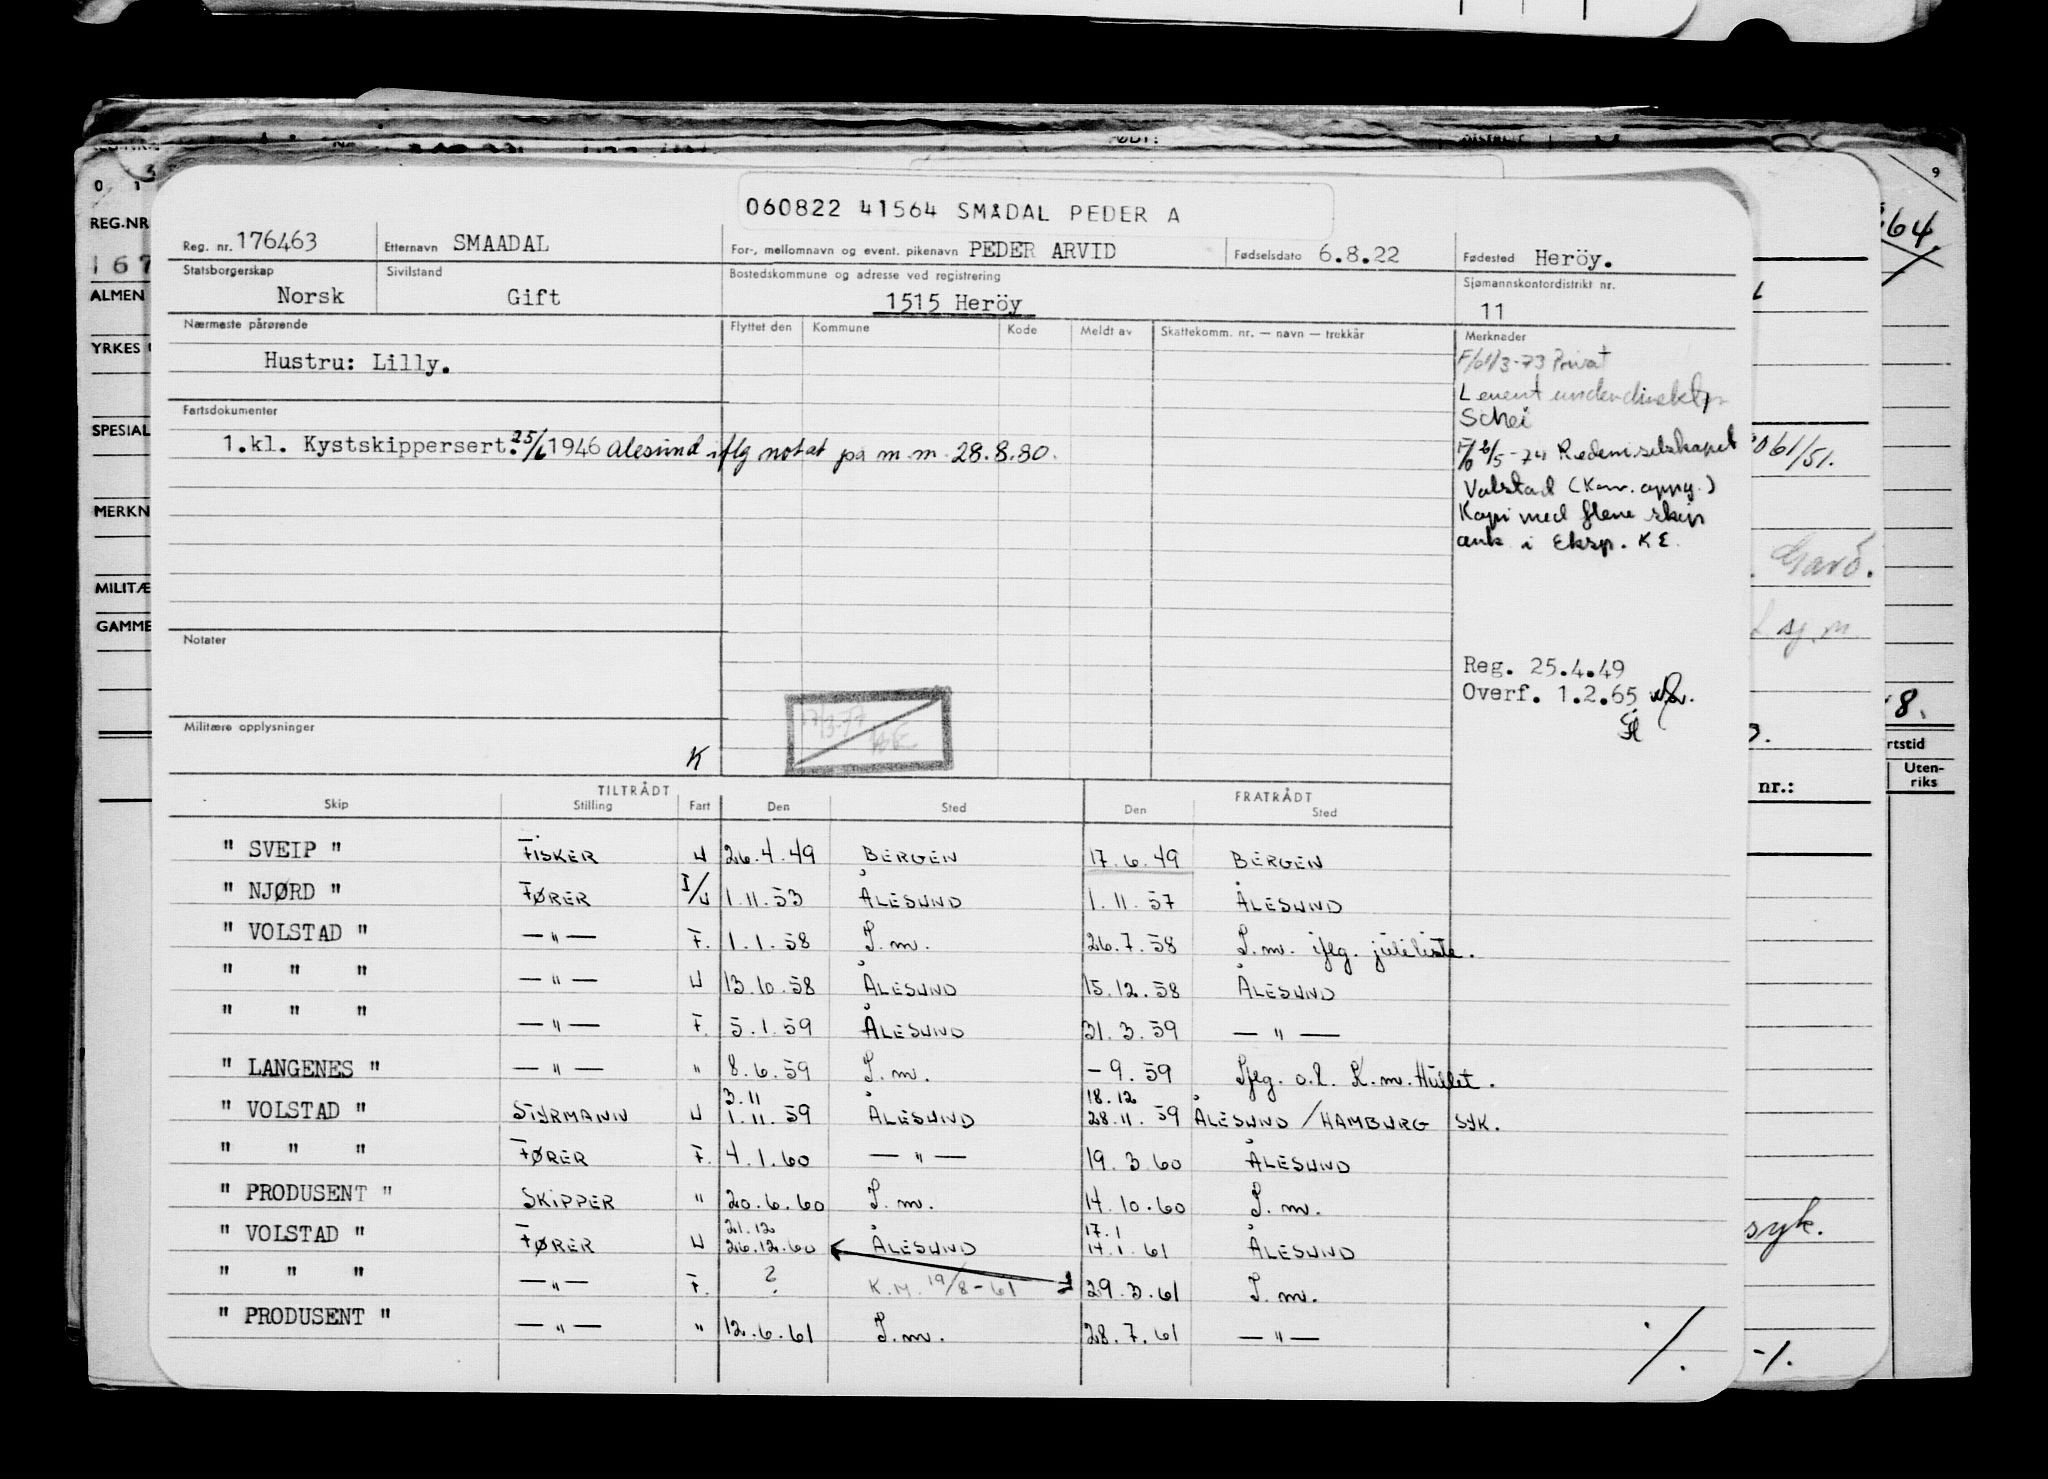 060822 41564 SMÅDAL PEDER A
Reg. nr. 176463 Etternavn SMAADAL For-, mellomnavn og event. pikenavn PEDER ARVID Fødselsdato 6.8.22 Fødested Heröy.
Statsborgerskap Norsk Sivilstand Gift Bostedskommune og adresse ved registrering 1515 Heröy Sjømannskontordistrikt nr. 11
Nærmeste pårørende Flyttet den Kommune Kode Meldt av Skattekomm. nr. — navn — trekkår Merknader
Hustru: Lilly.
Privat
Schei
Fartsdokumenter
1.kl. Kystskippersert. 25/6 1946 Ålesund iflg notat på m.m. 28.8.80.
Volstad
Kopi med flere skip
i Eksp. KE.
Notater
Reg. 25.4.49
Overf. 1.2.65
Militære opplysninger
K
TILTRÅDT FRATRÅDT
Skip Stilling Fart Den Sted Den Sted
" SVEIP " FISKER U 26.4.49 BERGEN 17.6.49 BERGEN
" NJØRD " FØRER I/U 1.11.53 ÅLESUND 1.11.57 ÅLESUND
" VOLSTAD " — " — F. 1.1.58 I.m. 26.7.58 I.m. iflg. juleliste.
" " " — " — U 13.10.58 ÅLESUND 15.12.58 ÅLESUND
" " " — " — F. 5.1.59 ÅLESUND 31.3.59 — " —
" LANGENES " — " — " 8.6.59 I.m. - 9.59 Iflg. o.l. K.m. Hullet.
3.11 18.12
" VOLSTAD " STYRMANN U 1.11.59 ÅLESUND 28.11.59 ÅLESUND / HAMBURG SYK.
" " " FØRER F. 4.1.60 — " — 19.3.60 ÅLESUND
" PRODUSENT " SKIPPER " 20.6.60 I.m. 14.10.60 I.m.
21.12 17.1
" VOLSTAD " FØRER U 26.12.60 ÅLESUND 14.1.61 ÅLESUND
" " " — " — F. ? K.M. 19/8-61 29.3.61 I.m.
" PRODUSENT " — " — " 12.6.61 I.m. 28.7.61 — " —
./.
REG.NR
ALMEN
YRKES
SPESIAL
MERKN
MILITÆ
GAMME
061/51.
rtstid
Uten-
riks
nr.:
syk.
-/.